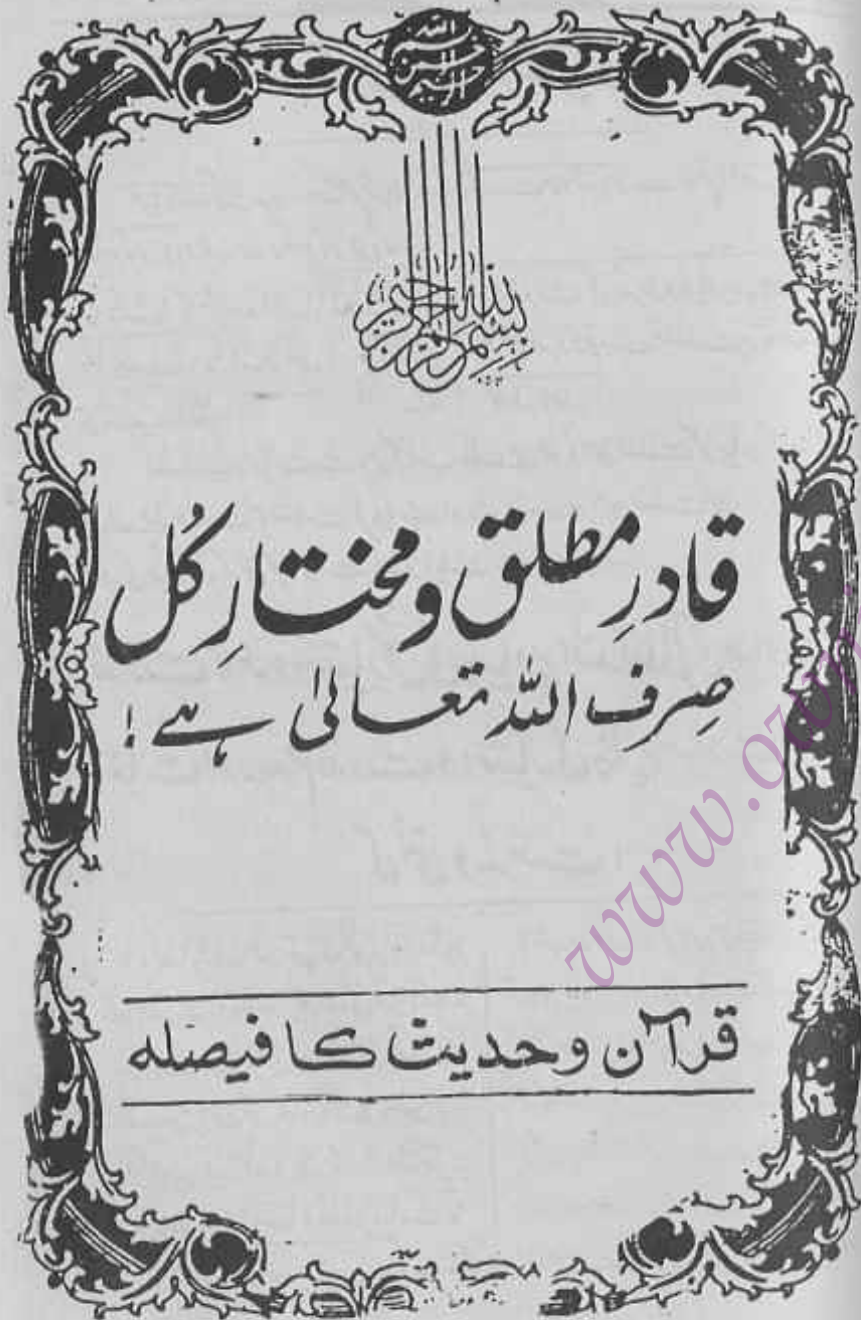 بسم الله الرحمن الرحيم
قادرِ مطلق و مختارِ کُل
صِرف اللہ تعالیٰ ہے !
قرآن و حدیث کا فیصلہ